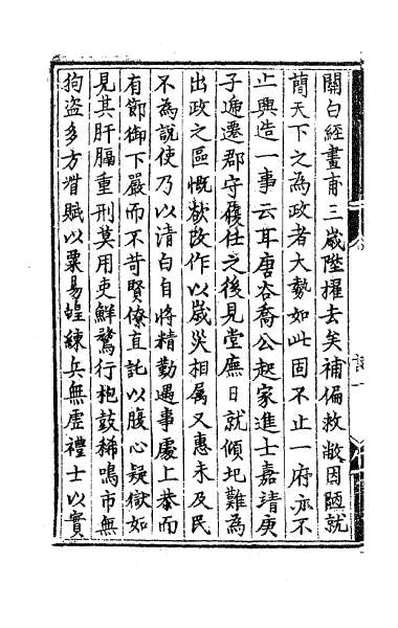 關白經畫甫三歲陞擢去矣補偏救敝因陋就
蕳天下之為政者大勢如此固不止一府亦不
止興造一事云耳唐峇喬公起家進士嘉靖庚
子遞遷郡守履任之後見堂廡日就傾圮難為
出政之區慨欲改作以歲災相属又惠未及民
不為說使乃以清白自將精勤遇事處上恭而
有節御下嚴而不苛賢僚直託以腹心疑獄如
見其肝膈重刑莫用吏鮮驁行枹鼓稀鳴市無
狗盜多方濬賦以粟易蝗練兵無虛禮士以實